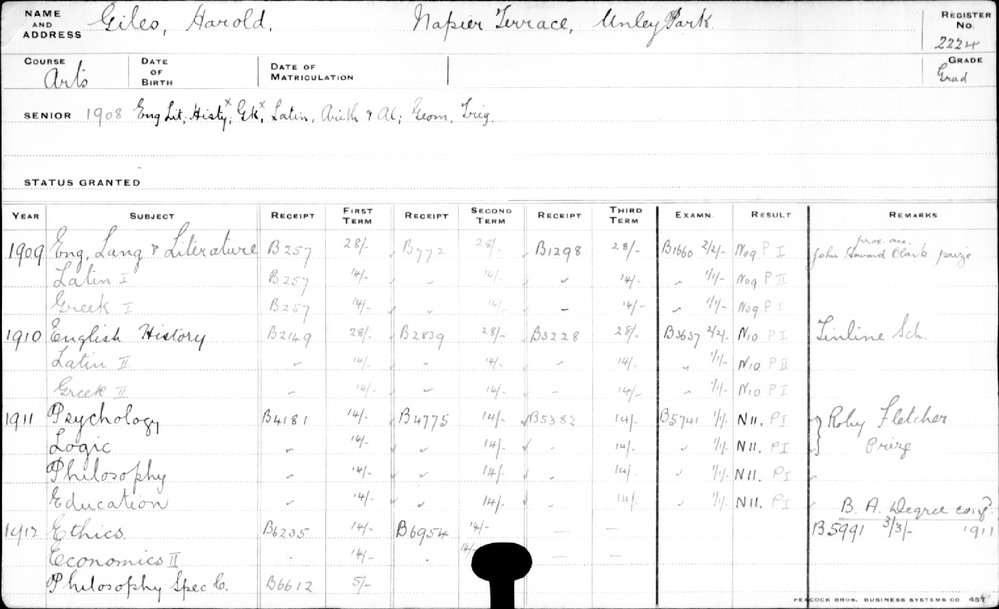 NAME AND ADDRESS Giles, Harold. Napier Terrace, Unley Park REGISTER No. 2224
COURSE Arts DATE OF BIRTH DATE OF MATRICULATION GRADE Grad
SENIOR 1908 Eng Lit, Histy,x Gk,x Latin, Arith & Al; Geom, Trig.
STATUS GRANTED
YEAR SUBJECT RECEIPT FIRST TERM RECEIPT SECOND TERM RECEIPT THIRD TERM EXAMN. RESULT REMARKS
1909 Eng. Lang & Literature B257 28/- B772 28/- B1298 28/- B1660 2/2/- N09 P I prox. acc. John Howard Clark prize
Latin I B257 14/- " 14/- " 14/- " 1/1/- N09 P II
Greek I B257 14/- " 14/- " 14/- " 1/1/- N09 P I
1910 English History B2149 28/- B2839 28/- B3228 28/- B3637 2/2/- N10 P I Tinline Sch.
Latin II " 14/- " 14/- " 14/- " 1/1/- N10 P II
Greek II " 14/- " 14/- " 14/- " 1/1/- N10 P I
1911 Psychology B4181 14/- B4775 14/- B5382 14/- B5741 1/1/- N11. P I } Roby Fletcher
Logic " 14/- " 14/- " 14/- " 1/1/- N11. P I Prize
Philosophy " 14/- " 14/- " 14/- " 1/1/- N11. P I
Education " 14/- " 14/- " 14/- " 1/1/- N11. P I B. A. Degree conf?
1912 Ethics B6235 14/- B6954 14/- — — B5991 3/3/- 1911
Economics II " 14/- 14/- — —
Philosophy Spec Co. B6612 5/-
PEACOCK BROS. BUSINESS SYSTEMS CO 457